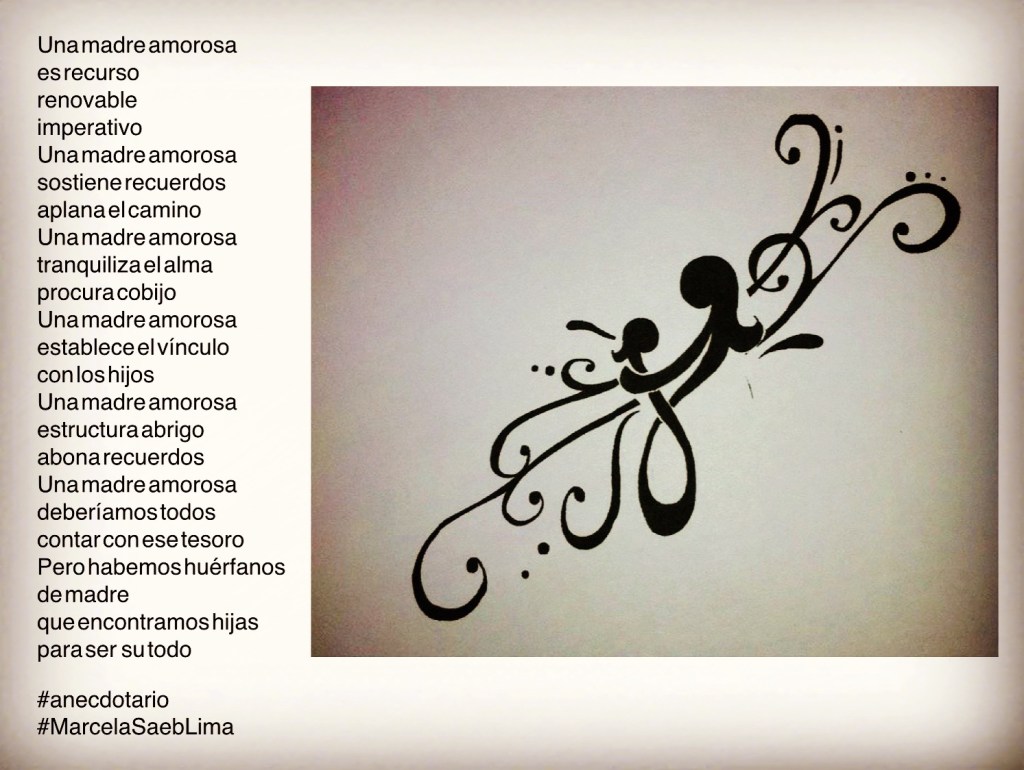 Una madre amorosa
es recurso
renovable
imperativo
Una madre amorosa
sostiene recuerdos
aplana el camino
Una madre amorosa
tranquiliza el alma
procura cobijo
Una madre amorosa
establece el vínculo
con los hijos
Una madre amorosa
estructura abrigo
abona recuerdos
Una madre amorosa
deberíamos todos
contar con ese tesoro
Pero habemos huérfanos
de madre
que encontramos hijas
para ser su todo
#anecdotario
#MarcelaSaebLima